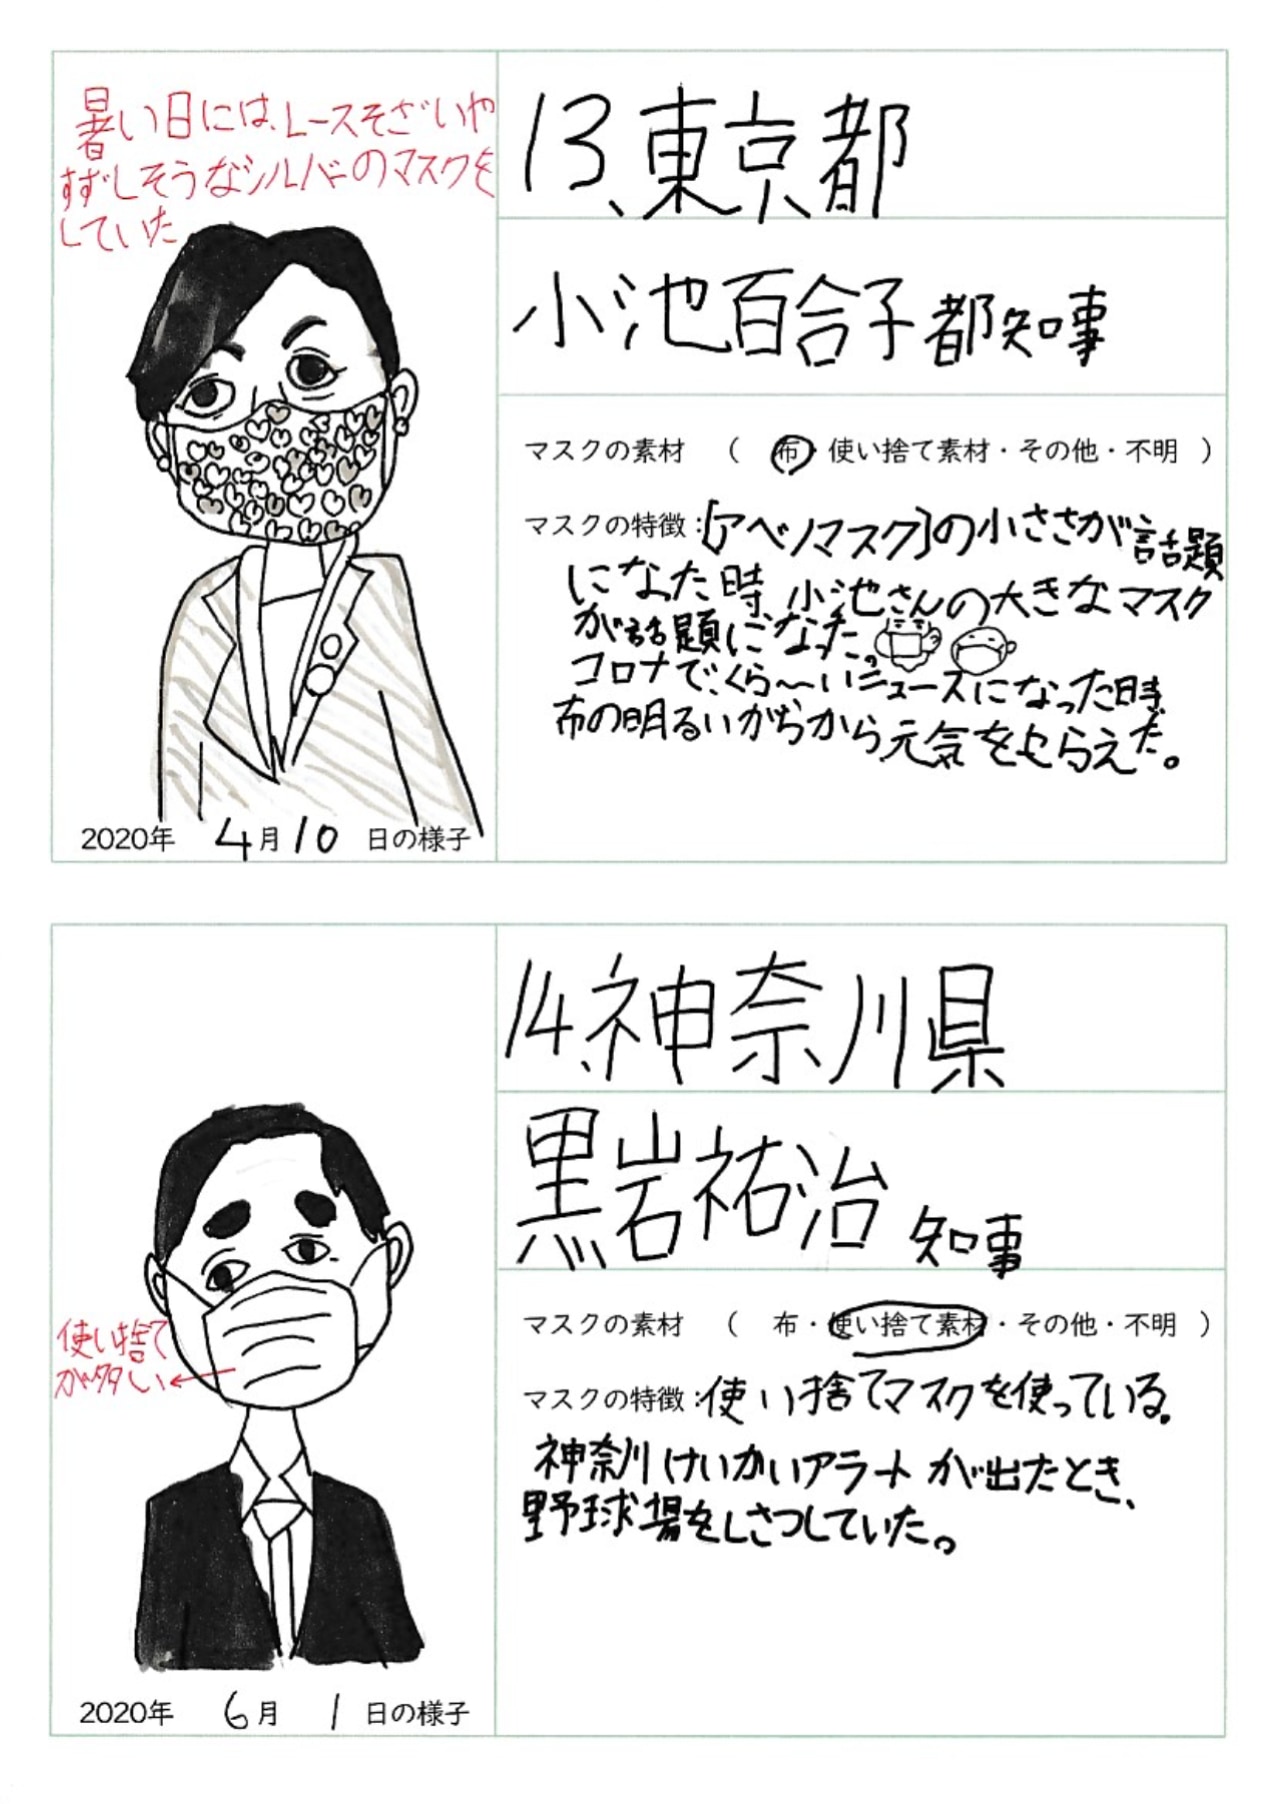 暑い日には、レースそざいや
すずしそうなシルバーのマスクを
していた
2020年 4月10日の様子
13、東京都
小池百合子都知事
マスクの素材 （ 布・使い捨て素材・その他・不明 ）
マスクの特徴：[アベノマスク]の小ささが話題
になった時、小池さんの大きなマスク
が話題になった。
コロナで、くら〜いニュースになった時、
布の明るいがらから元気をもらえた。
使い捨て
が多い
2020年 6月 1日の様子
14、神奈川県
黒岩祐治 知事
マスクの素材 （ 布・使い捨て素材・その他・不明 ）
マスクの特徴：使い捨てマスクを使っている。
神奈川けいかいアラートが出たとき、
野球場をしさつしていた。